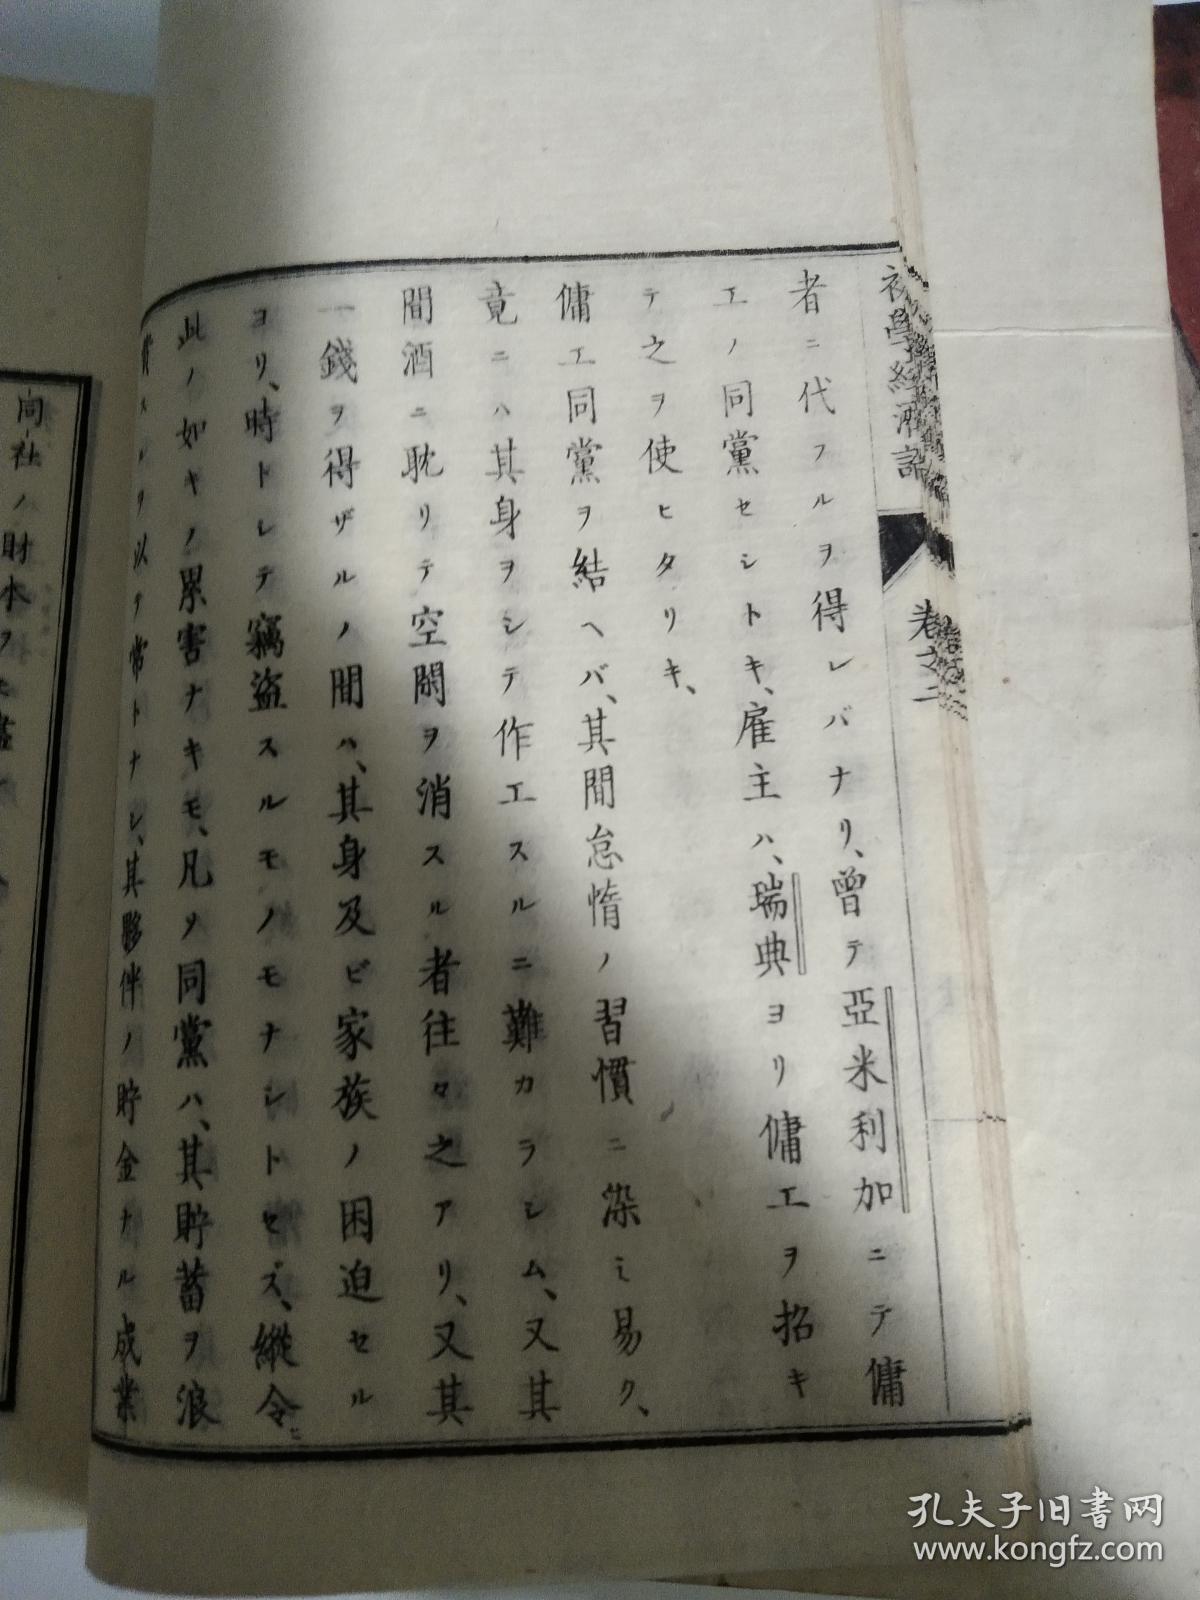 初學經濟論
卷之二
者ニ代フルヲ得レバナリ、曾テ亞米利加ニテ傭
工ノ同黨セシトキ、雇主ハ、瑞典ヨリ傭工ヲ招キ
テ之ヲ使ヒタリキ、
傭工同黨ヲ結ヘバ、其間怠惰ノ習慣ニ染ミ易ク、
竟ニハ其身ヲシテ作工スルニ難カラシム、又其
間酒ニ耽リテ空閑ヲ消スル者往々之アリ、又其
一錢ヲ得ザルノ間ハ、其身及ビ家族ノ困迫セル
ヨリ、時トシテ竊盜スルモノモナシトセズ、縱令ニ
此ノ如キノ累害ナキモ、凡ソ同黨ハ、其貯蓄ヲ浪
費スルヲ以テ常トナシ、其夥伴ノ貯金ナル成業
同社ノ財本ヲ
孔夫子旧书网
www.kongfz.com